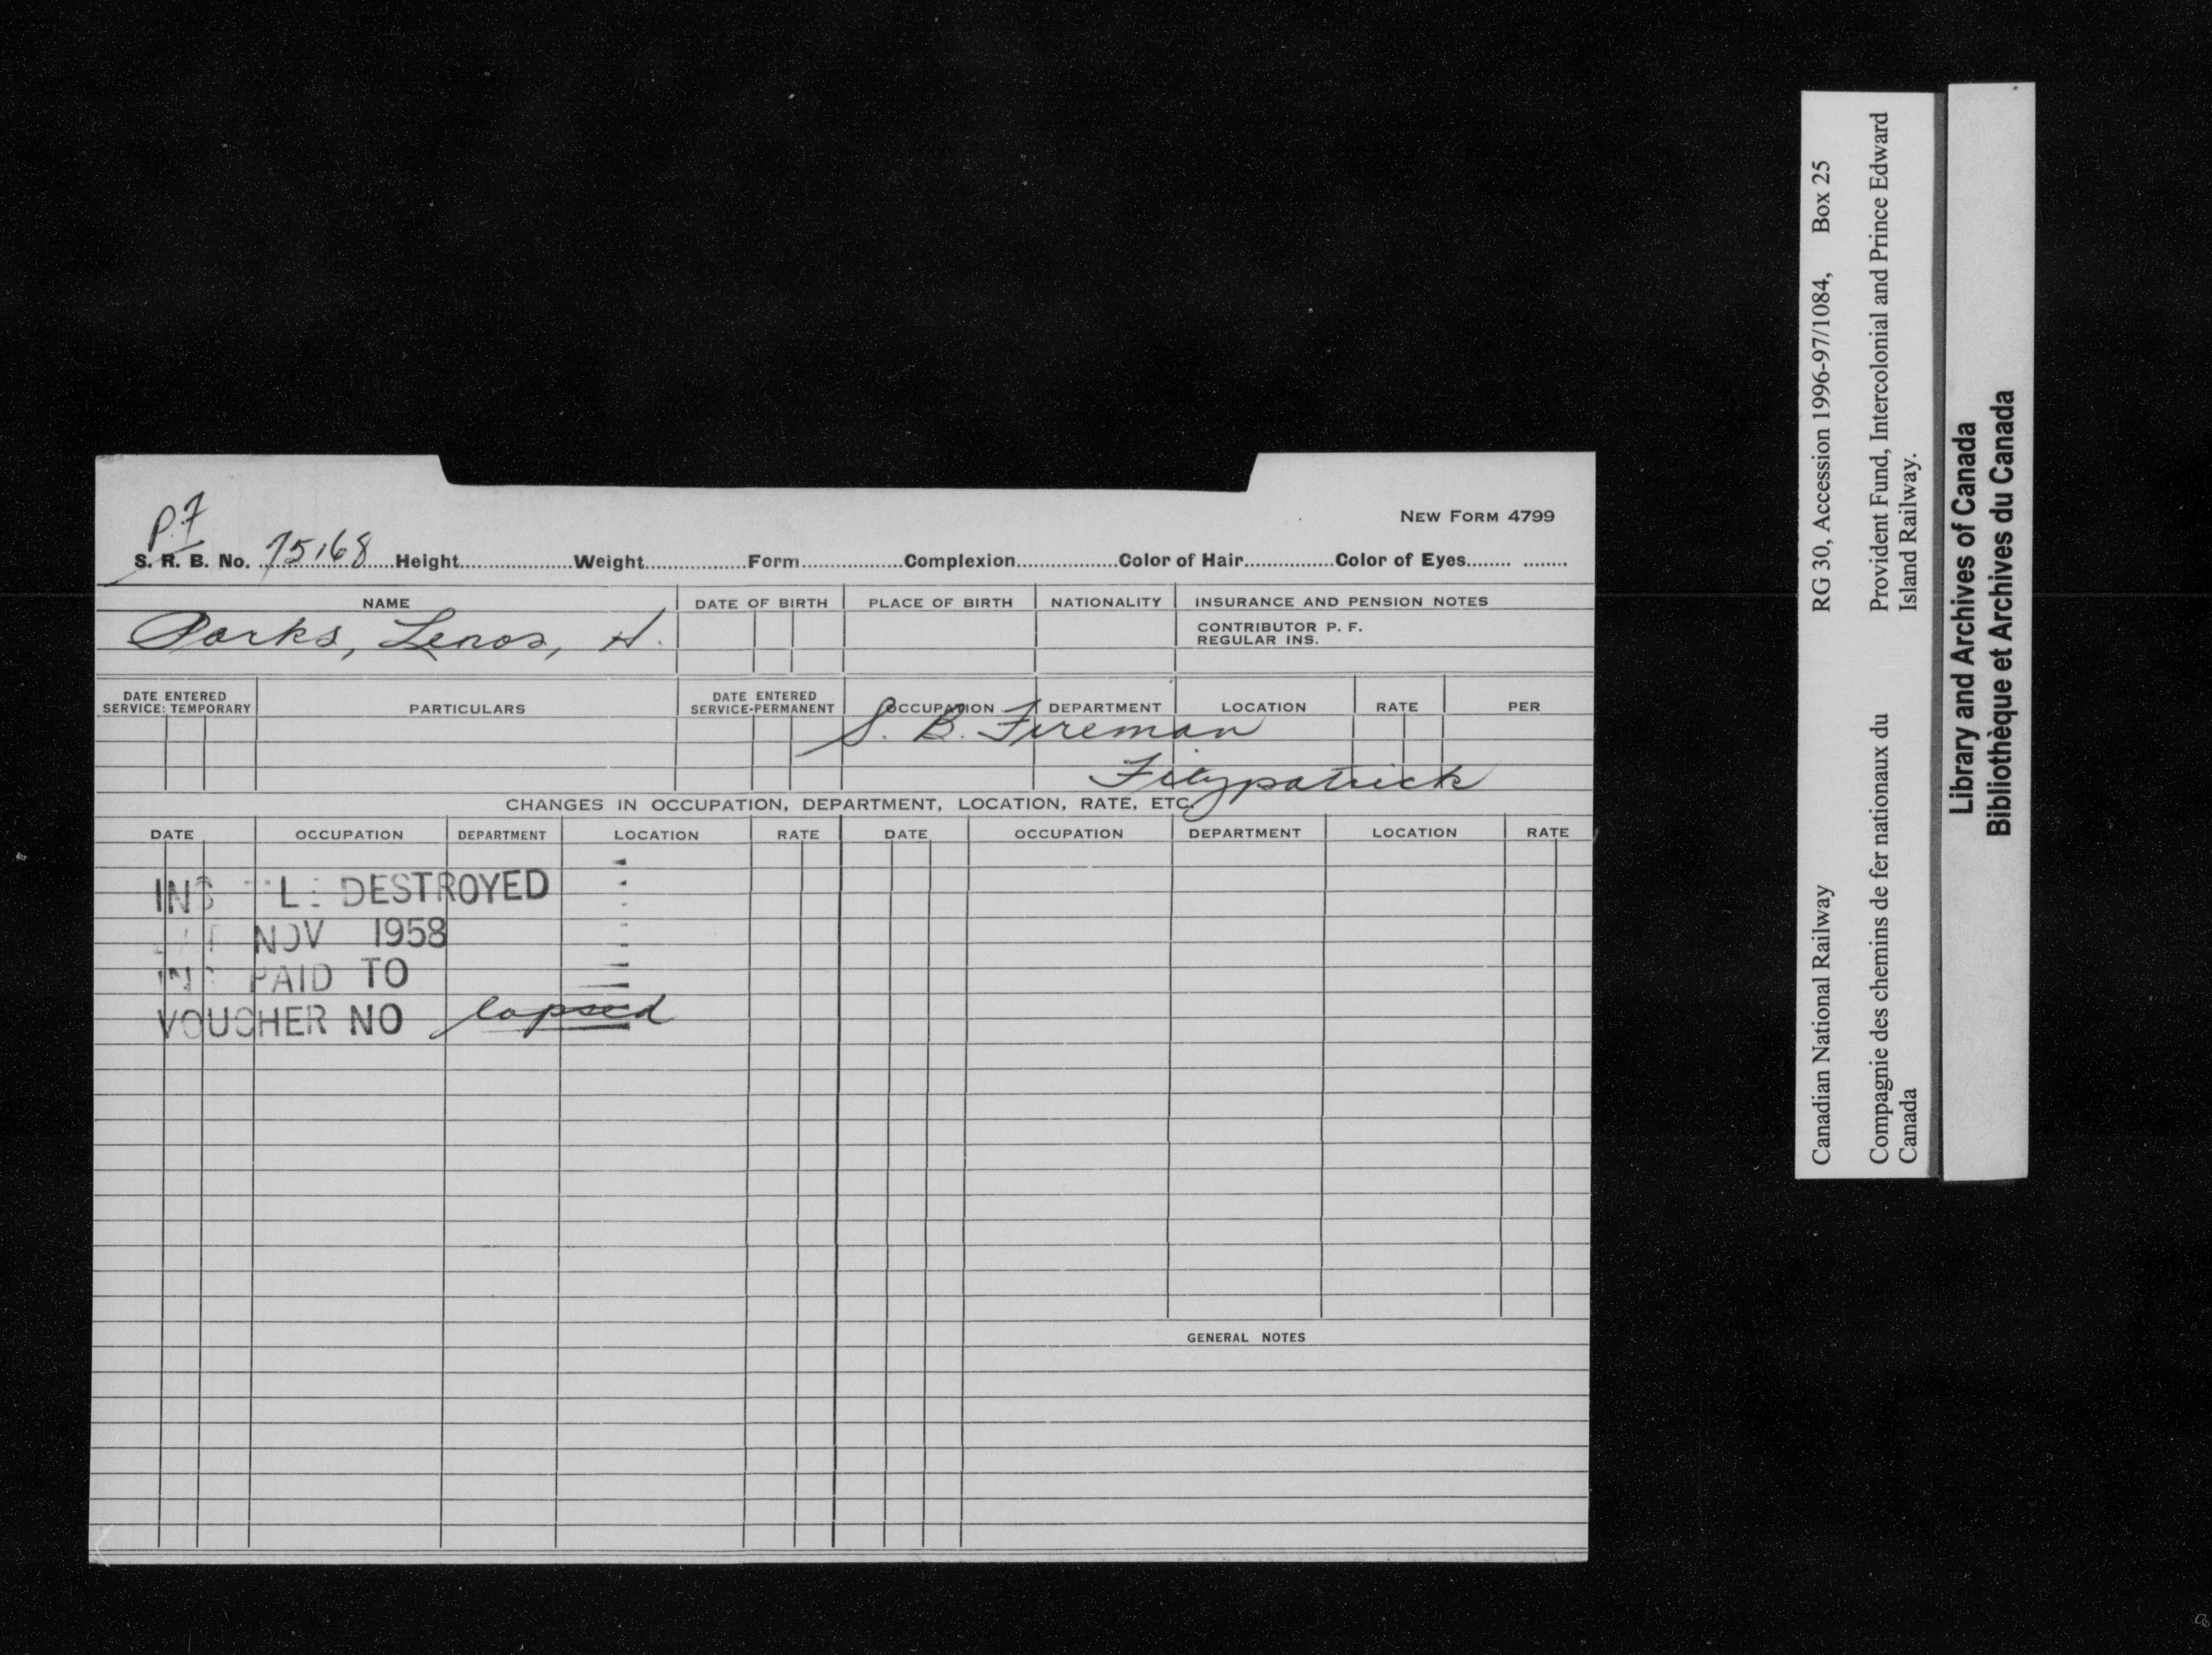 P.F
NEW FORM 4799
S. R. B. No. 75168 Height Weight Form Complexion Color of Hair Color of Eyes
NAME DATE OF BIRTH PLACE OF BIRTH NATIONALITY INSURANCE AND PENSION NOTES
CONTRIBUTOR P. F.
REGULAR INS.
Parks, Lenos, H.
DATE ENTERED SERVICE: TEMPORARY PARTICULARS DATE ENTERED SERVICE-PERMANENT OCCUPATION DEPARTMENT LOCATION RATE PER
S. B. Fireman
Fitzpatrick
CHANGES IN OCCUPATION, DEPARTMENT, LOCATION, RATE, ETC.
DATE OCCUPATION DEPARTMENT LOCATION RATE DATE OCCUPATION DEPARTMENT LOCATION RATE
INS DESTROYED
NOV 1958
PAID TO
VOUCHER NO lapsed
GENERAL NOTES
Canadian National Railway RG 30, Accession 1996-97/1084, Box 25
Compagnie des chemins de fer nationaux du Canada
Provident Fund, Intercolonial and Prince Edward Island Railway.
Library and Archives of Canada
Bibliothèque et Archives du Canada